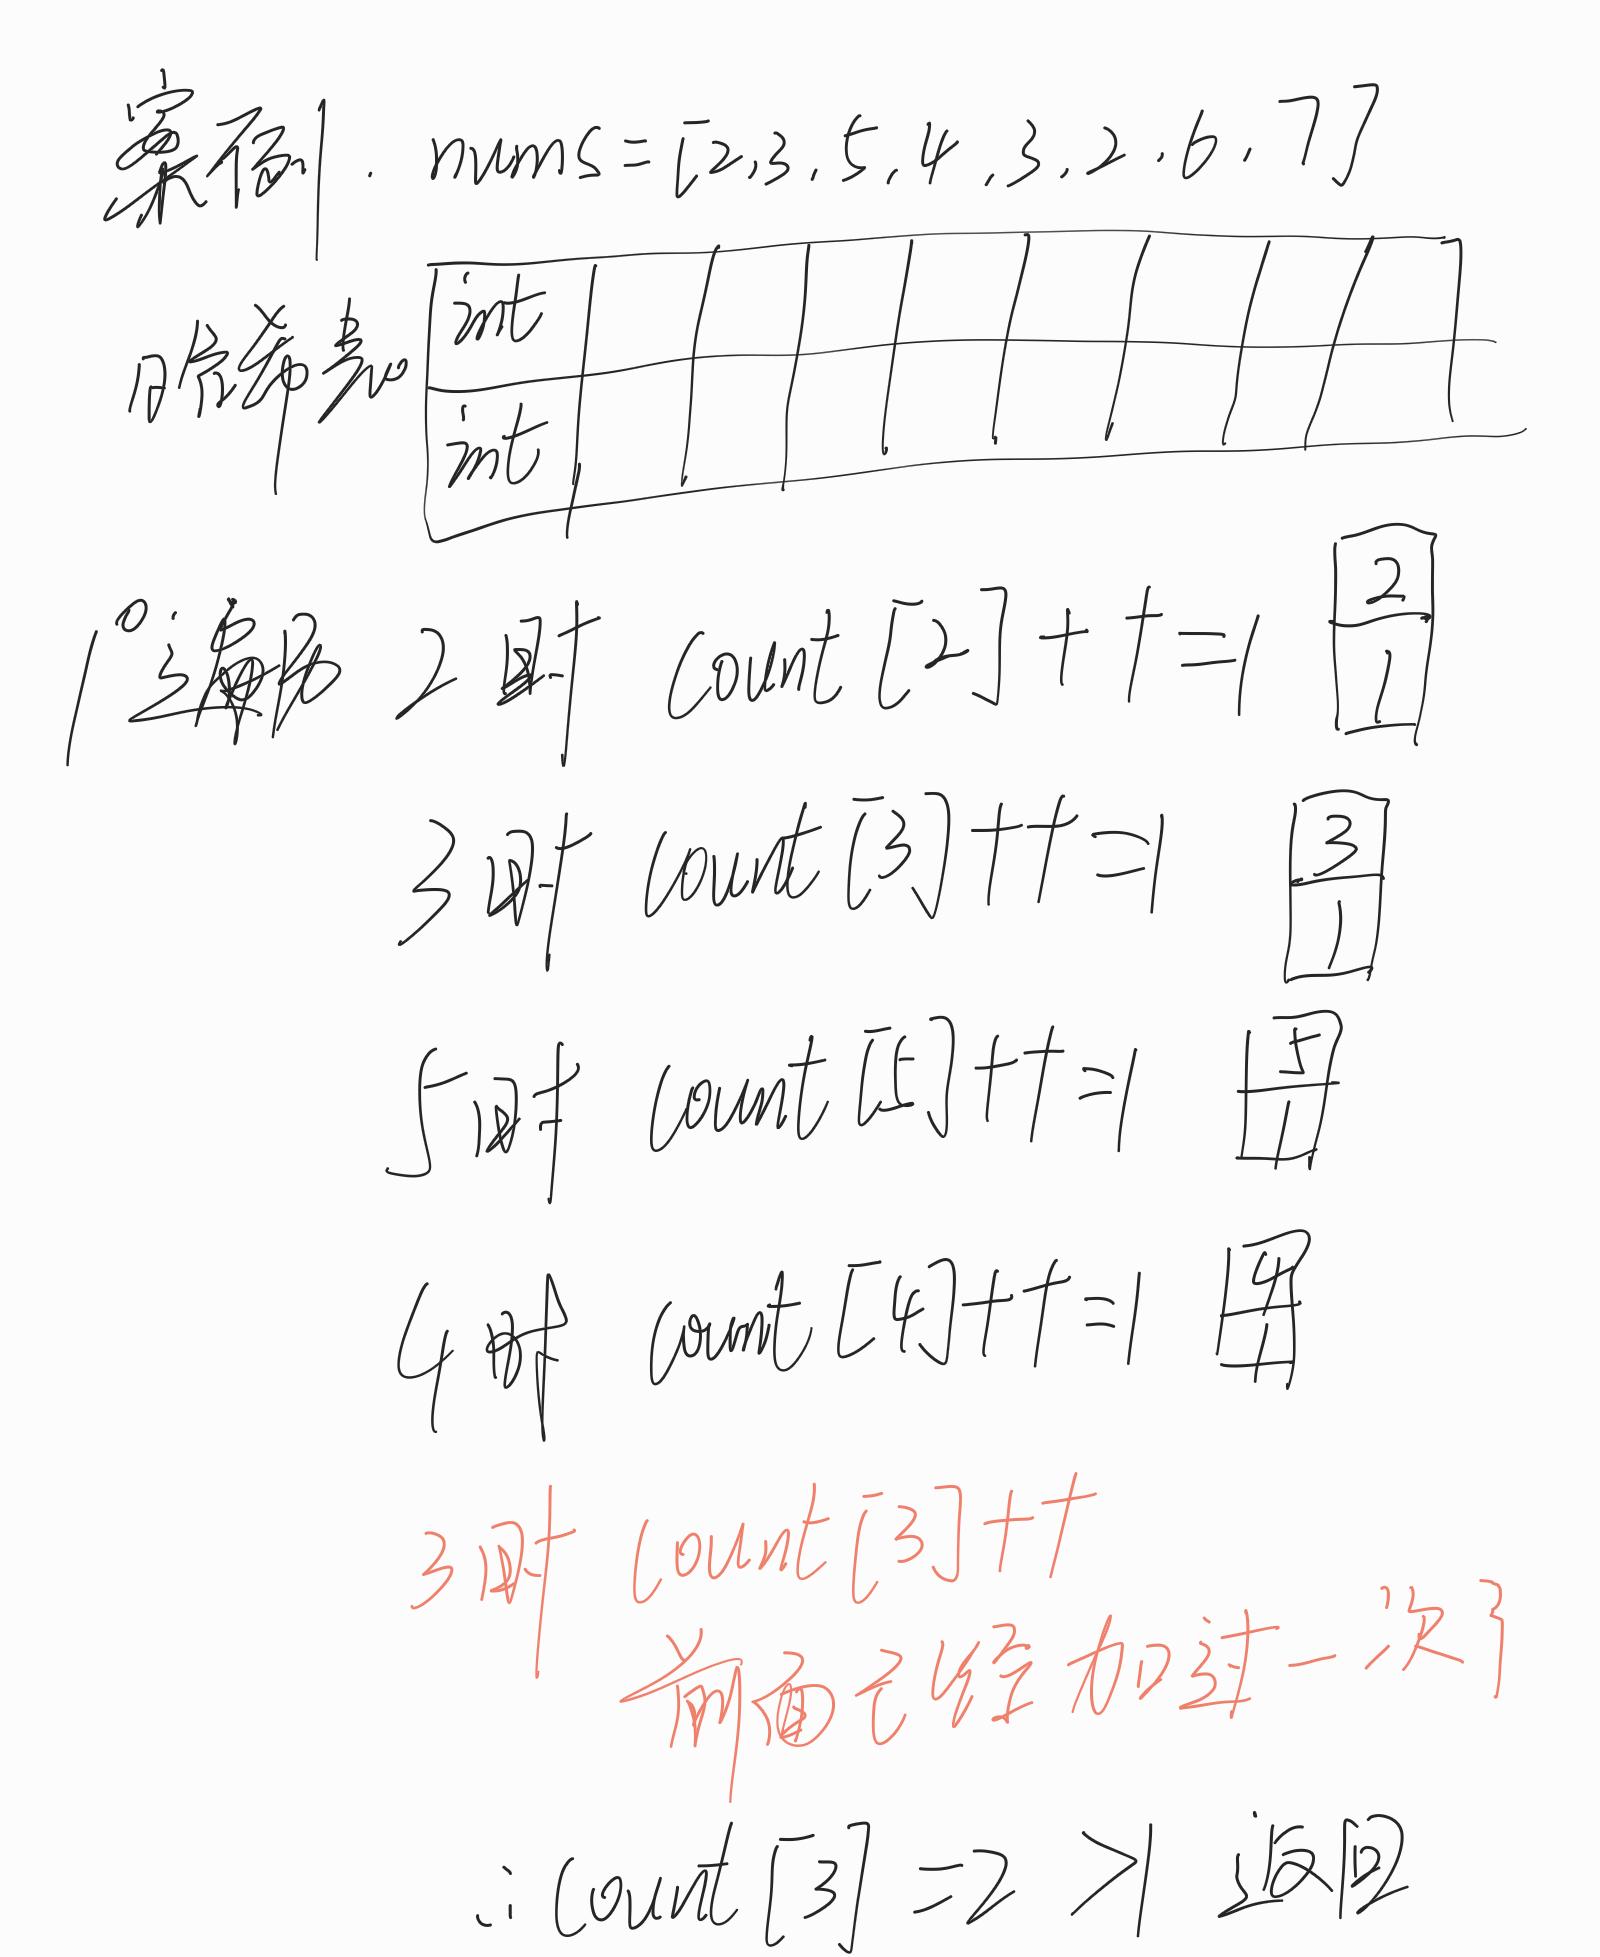 案例1. nums = [2,3,5,4,3,2,6,7]
哈希表 int
int
1° 遍历 2时 count[2]++=1 2
1
3时 count[3]++=1 3
1
5时 count[5]++=1 5
1
4时 count[4]++=1 4
1
3时 count[3]++
前面已经加过一次了
∴ count[3]=2 >1 返回